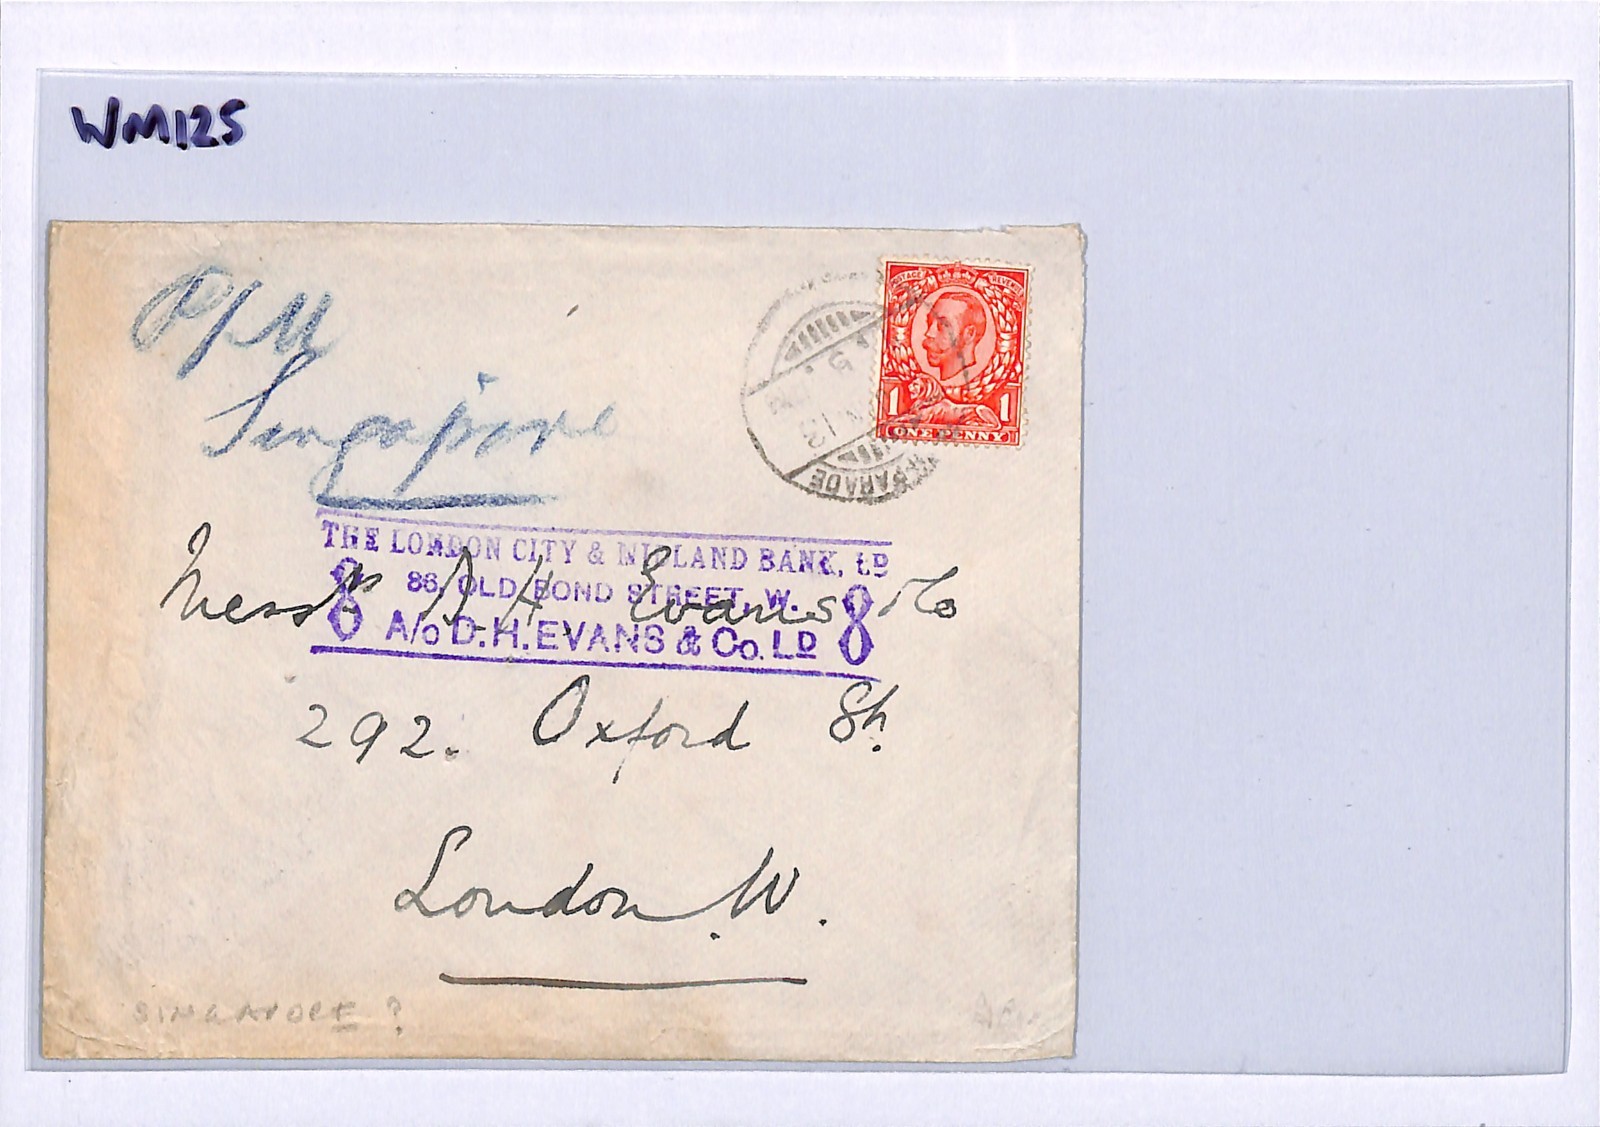 WM125
P/M
Singapore
POSTAGE REVENUE
1 1
ONE PENNY
PARADE
THE LONDON CITY & MIDLAND BANK, LD
86, OLD BOND STREET, W.
8 8
A/o D.H. EVANS & Co. LD
Messrs D. H. Evans & Co
292. Oxford St.
London. W.
SINGAPORE?